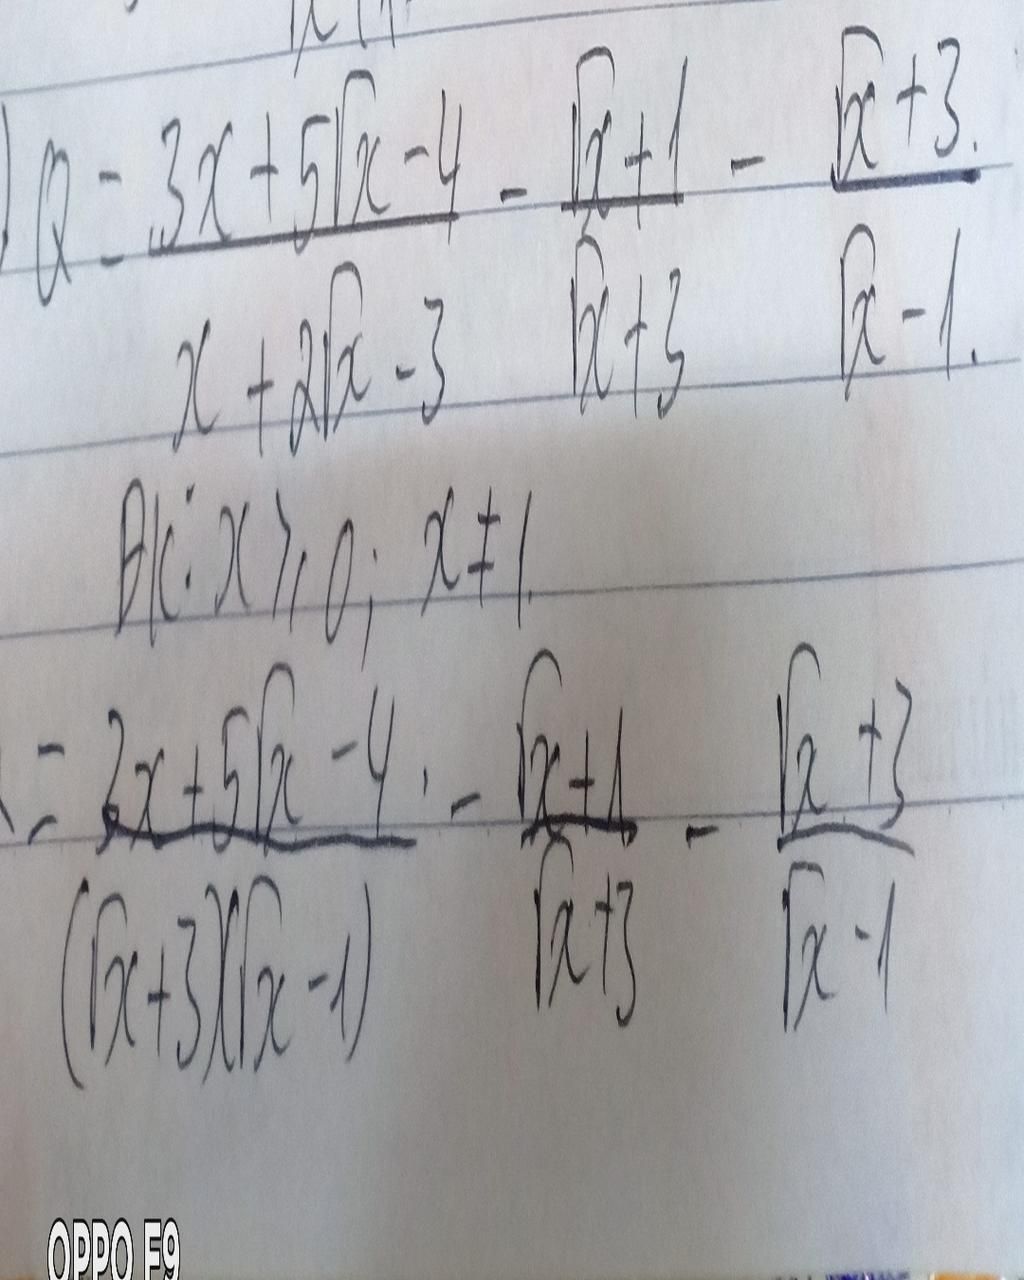 ) Q = \frac{3x + 5\sqrt{x} - 4}{x + 2\sqrt{x} - 3} - \frac{\sqrt{x} + 1}{\sqrt{x} + 3} - \frac{\sqrt{x} + 3}{\sqrt{x} - 1}
ĐK: x ⩾ 0; x ≠ 1
= \frac{3x + 5\sqrt{x} - 4}{(\sqrt{x} + 3)(\sqrt{x} - 1)} - \frac{\sqrt{x} + 1}{\sqrt{x} + 3} - \frac{\sqrt{x} + 3}{\sqrt{x} - 1}
OPPO F9